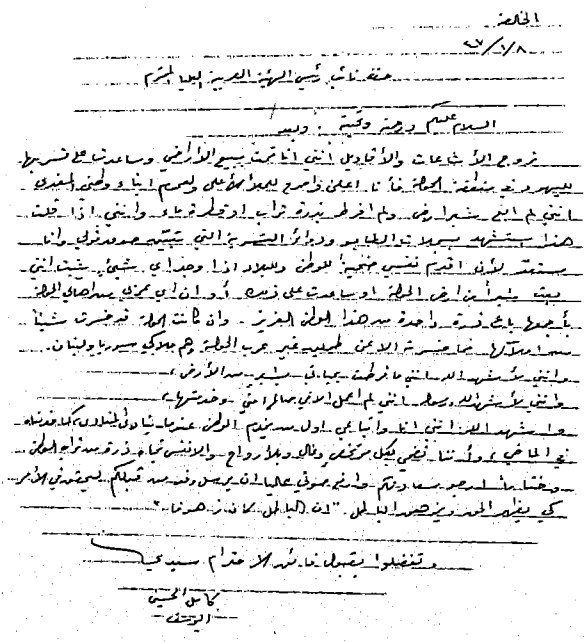 الخالصة
٤٧/١/٨
حضرة نائب رئيس الهيئة العربية العليا المحترم
السلام عليكم ورحمة وتحية، وبعد
تروج الأشاعات والأقاويل انني انا قمت ببيع الاراضي وساعدت على تسريبها
لليهود في منطقة الحولة فأنا اعلن واصرح للملأ الأعلى ولعموم ابناء وطني المفدى
انني لم ابع شبر ارض ولم افرط بذرة تراب او قطرة ماء وانني اذا قلت
هذا مستشهد بسجلات الطابو ودوائر التسوية التي تثبت صدق قولي وانا
مستعد لأن اقدم نفسي ضحية للوطن وللبلاد اذا وجد اي شيئ يثبت انني
بعت شبراً من ارض الحولة او ساعدت على ذلك. أو ان اي عربي من اهالي الحولة
بأجمعها باع ذرة واحدة من هذا الوطن العزيز. وان كانت الحولة قد خسرت شيئاً
من املاكها فما خسرته الا عن طريق غير عرب الحولة وهم ملاكي سوريا ولبنان.
وانني لأشهد الله انني ما فرطت بحياتي بشبر من الأرض،
وانني لأشهد الله ورسوله انني لم اعمل الا في صالح امتي وخدمتها،
واشهد الله انني انا واتباعي اول من يخدم الوطن عندما ينادي المنادي كما خدمناه
في الماضي، وأننا نضحي بكل مرتخص وغال وبالأرواح والانفس تجاه ذرة من تراب الوطن
وختاماً أرجو سعادتكم وارفع صوتي عالياً ان يرسل وفد من قبلكم ليحقق في الأمر
كي يظهر الحق ويزهق الباطل. "ان الباطل كان زهوقا".
وتفضلوا بقبول فائق الاحترام سيدي
كامل الحسين
اليوسف